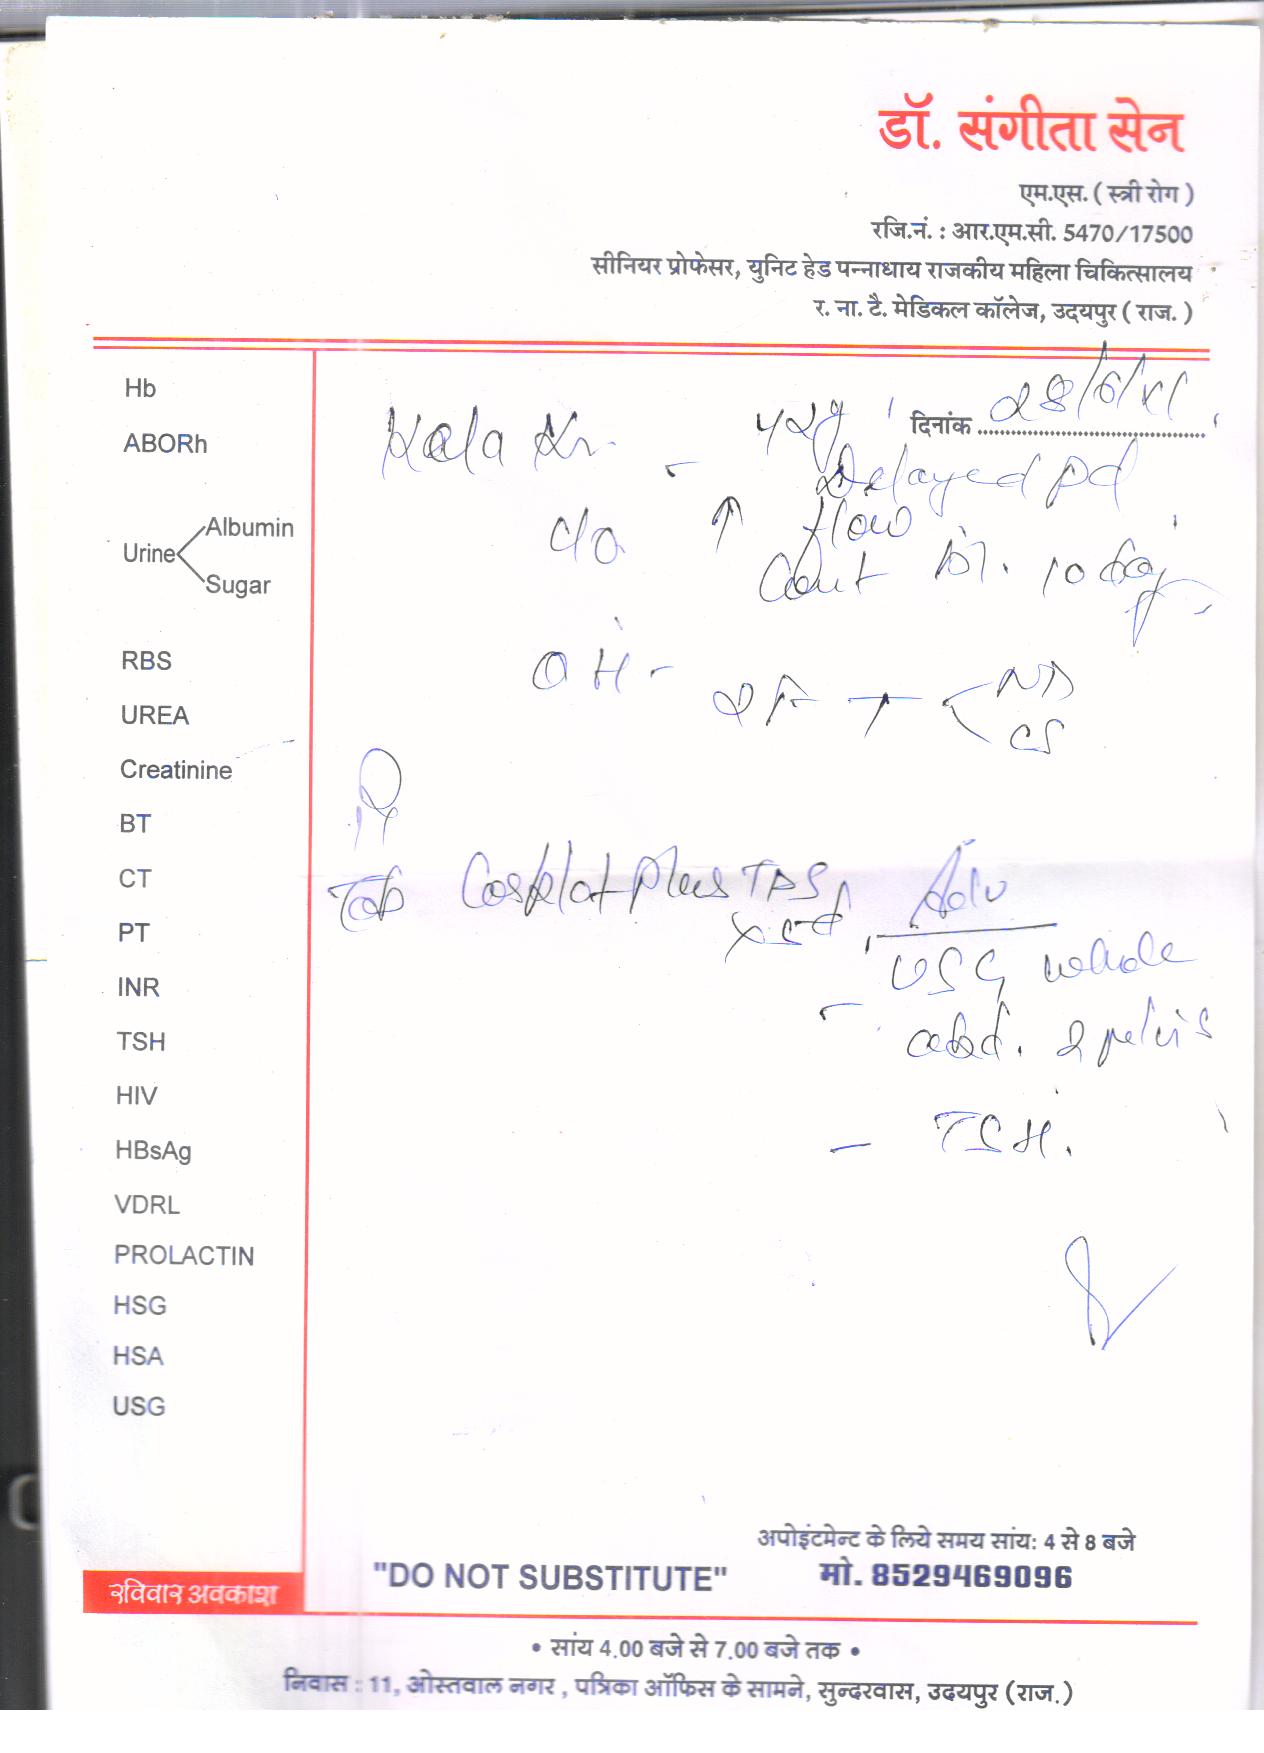 डॉ. संगीता सेन
एम.एस. ( स्त्री रोग )
रजि.नं. : आर.एम.सी. 5470/17500
सीनियर प्रोफेसर, युनिट हेड पन्नाधाय राजकीय महिला चिकित्सालय
र. ना. टै. मेडिकल कॉलेज, उदयपुर ( राज. )
दिनांक
Hb
ABORh
Urine
Albumin
Sugar
RBS
UREA
Creatinine
BT
CT
PT
INR
TSH
HIV
HBsAg
VDRL
PROLACTIN
HSG
HSA
USG
Kala Kr.
Delayed pd
c/o ↑ flow
10 day
OH -
ND
CS
Tab Plus TDS
x 5d
Adv
USG whole
abd. & pelvis
- TSH.
अपोइंटमेन्ट के लिये समय सांय: 4 से 8 बजे
"DO NOT SUBSTITUTE" मो. 8529469096
रविवार अवकाश
• सांय 4.00 बजे से 7.00 बजे तक •
निवास : 11, ओस्तवाल नगर , पत्रिका ऑफिस के सामने, सुन्दरवास, उदयपुर (राज.)